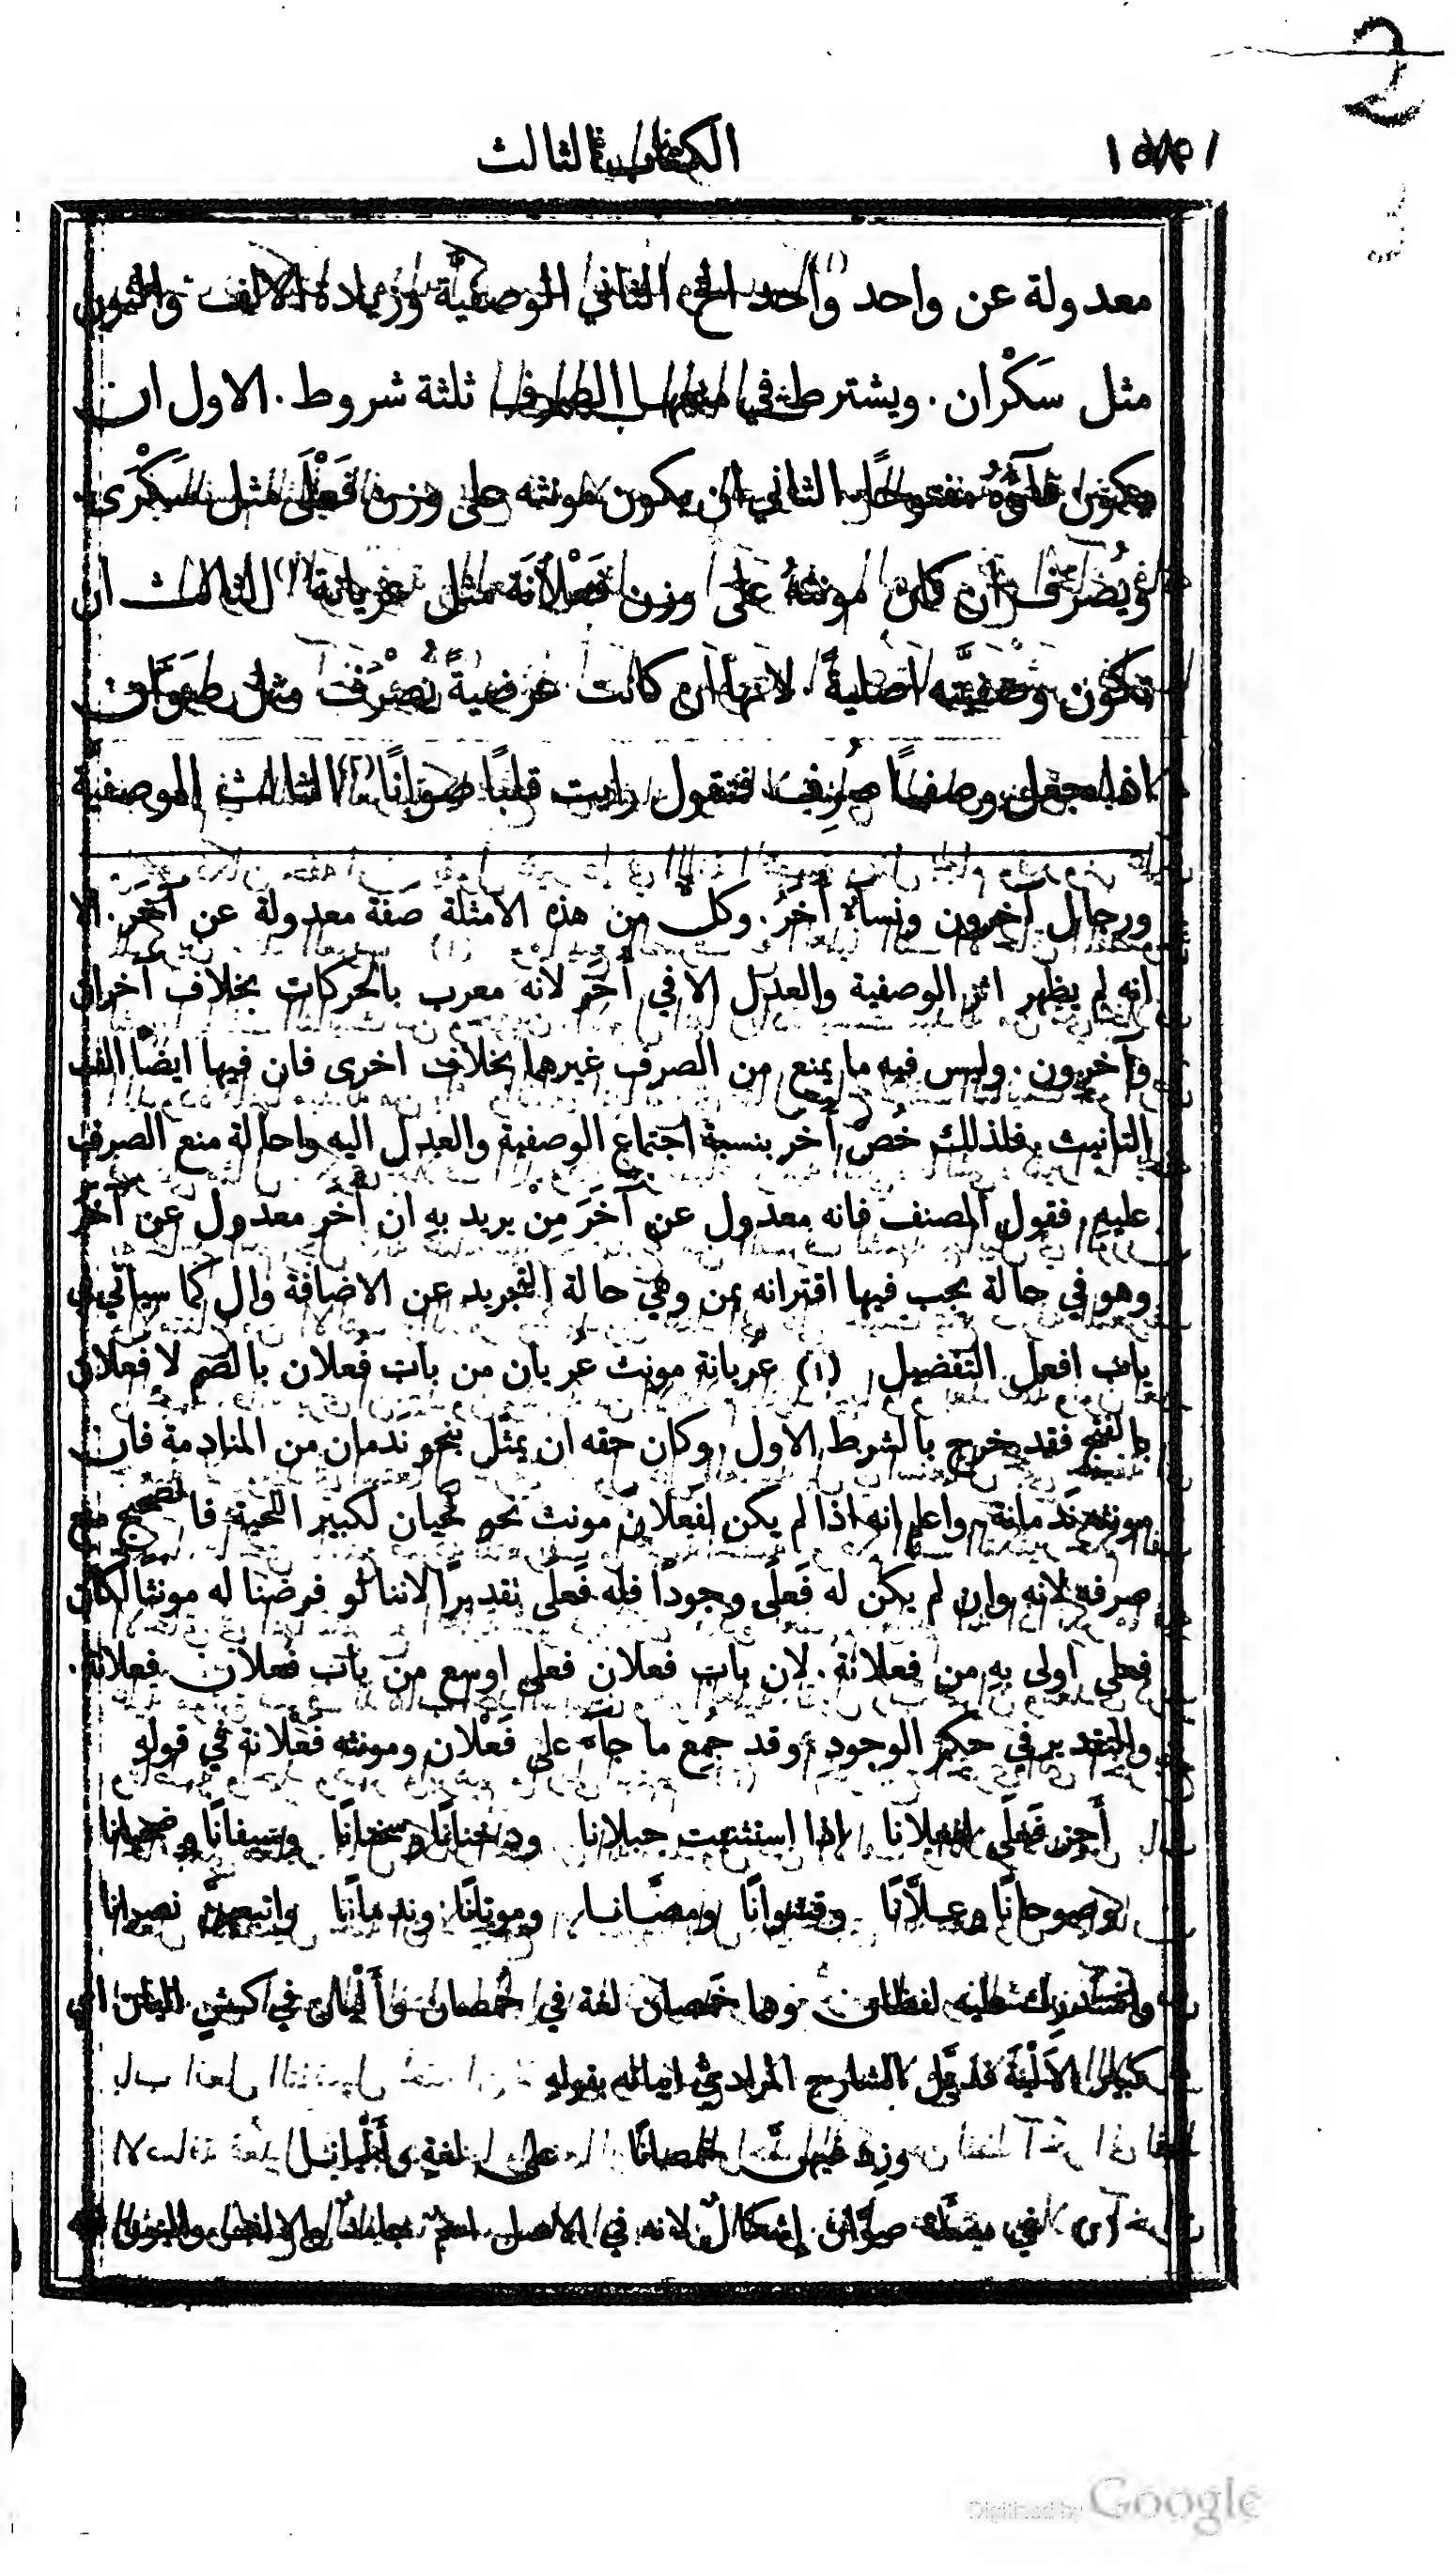 الكتاب الثالث
معدولة عن واحد واحد الخ الثاني الوصفية وزيادة الالف والنون
مثل سَكْران. ويشترط في منعها الصرف ثلثة شروط. الاول ان
يكون فآوُّهُ مفتوحًا الثاني ان يكون مونثه على وزن فَعْلَى مثل سَكْرَى.
ويُصْرَف ان كان مونثهُ على وزن فَعْلَانَة مثل عريانة (١) الثالث ان
تكون وصفيَّته اصليةً. لانها ان كانت عرضيةً تُصْرَف مثل صَوَّان
اذا جعل وصفًا صُرِف فتقول رايت قلبًا صوَّانًا (٢) الثالث الوصفية
ورجال آخرون ونسآء أُخَرُ. وكلٌّ من هذه الامثلة صفة معدولة عن آخَرَ. الا
انه لم يظهر اثر الوصفية والعدل الا في أُخَر لانه معرب بالحركات بخلاف آخران
وآخرون. وليس فيه ما يمنع من الصرف غيرهما بخلاف اخرى فان فيها ايضًا الف
التانيث فلذلك خُصَّ أُخَر بنسبة اجتماع الوصفية والعدل اليه واحالة منع الصرف
عليهِ. فقول المصنف فانه معدول عن آخَرَ مِنْ يريد بهِ ان أُخَر معدول عن آخَر
وهو في حالة يجب فيها اقترانه بمن وهي حالة التجريد عن الاضافة وال كما سياتي في
باب افعل التفضيل (١) عُريانة مونث عُريان من باب فُعلان بالضم لا فَعلان
بالفتح فقد خرج بالشرط الاول. وكان حقه ان يمثّل بنحو نَدمان من المنادمة فان
مونثه نَدمانة. واعلم انه اذا لم يكن لفَعلان مونث نحو لَحيان لكبير اللحية فالصحيح منع
صرفه لانه وان لم يكن له فَعلَى وجودًا فله فَعلى تقديرًا لاننا لو فرضنا له مونثا لكان
فعلى اولى بهِ من فعلانة. لان باب فعلان فعلى اوسع من باب فعلان فعلانة.
والتقدير في حكم الوجود. وقد جُمِع ما جآء على فَعْلان ومونثه فَعْلانة في قولهِ
أَجِز فَعلَى لفعلانا اذا استثنيت حبلانا ودخنانًا وسخنانًا وسيفانًا وضحيانا
وصوجانًا وعلَّانًا وقشوانًا ومصَّانا وموتانًا وندمانًا واتبعهنَّ نصرانا
واستُدرِك عليه لفظان وهما خَمصان لغة في خُمصان وأَلْيان في كبشٍ اليان اي
كبير الاَلْيَة فذيَّل الشارح المرادي ابياته بقولهِ
وزد فيهنَّ خمصانًا على لغةٍ وأَلْيانا
في مثَّله صوَّان إِشكالٌ لانه في الاصل اسم جامد والالف والنون
Digitized by Google